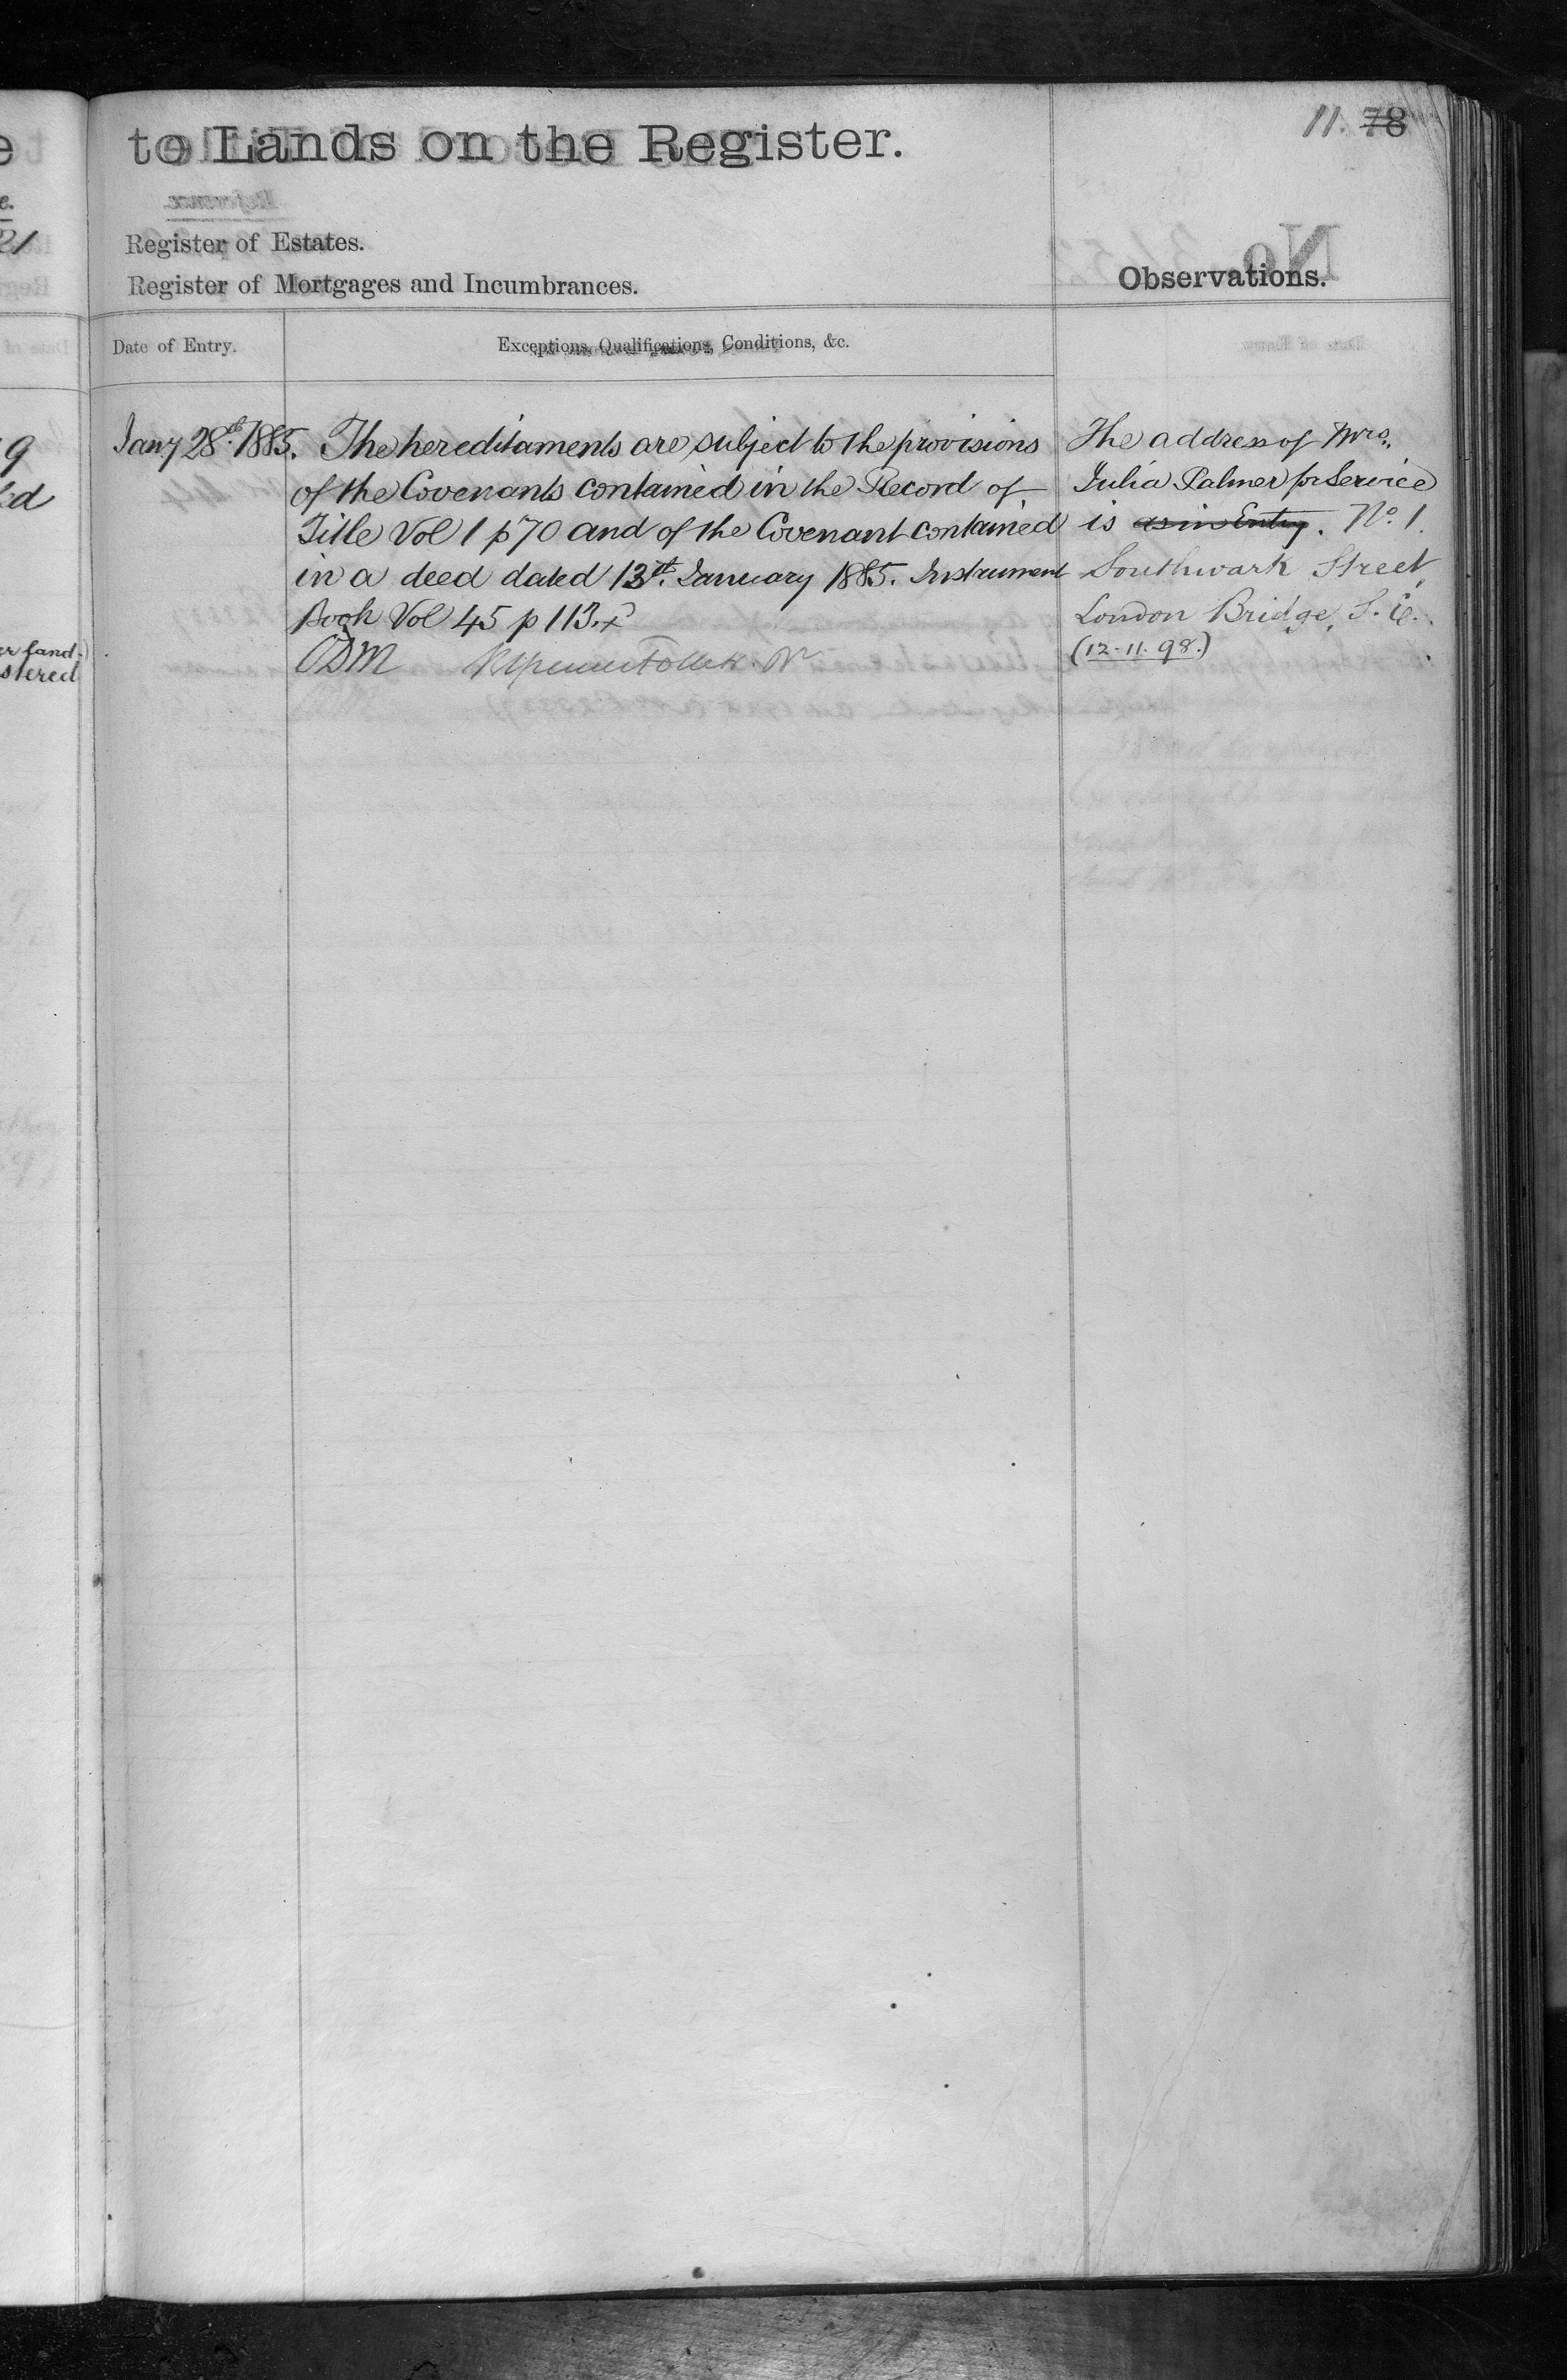 11. 78
to Lands on the Register.
Register of Estates.
Register of Mortgages and Incumbrances.
Observations.
Date of Entry.
Exceptions, Qualifications, Conditions, &c.
Jany 28th. 1885.
The hereditaments are subject to the provisions
of the Covenants contained in the Record of
Title Vol 1 p 70 and of the Covenant contained
in a deed dated 13th. January 1885. Instrument
Book Vol 45 p 113.
ODM
The address of Mrs.
Julia Palmer for Service
is as in Entry. No. 1.
Southwark Street,
London Bridge, S.E.
(12-11-98.)
21
9
er land
stered